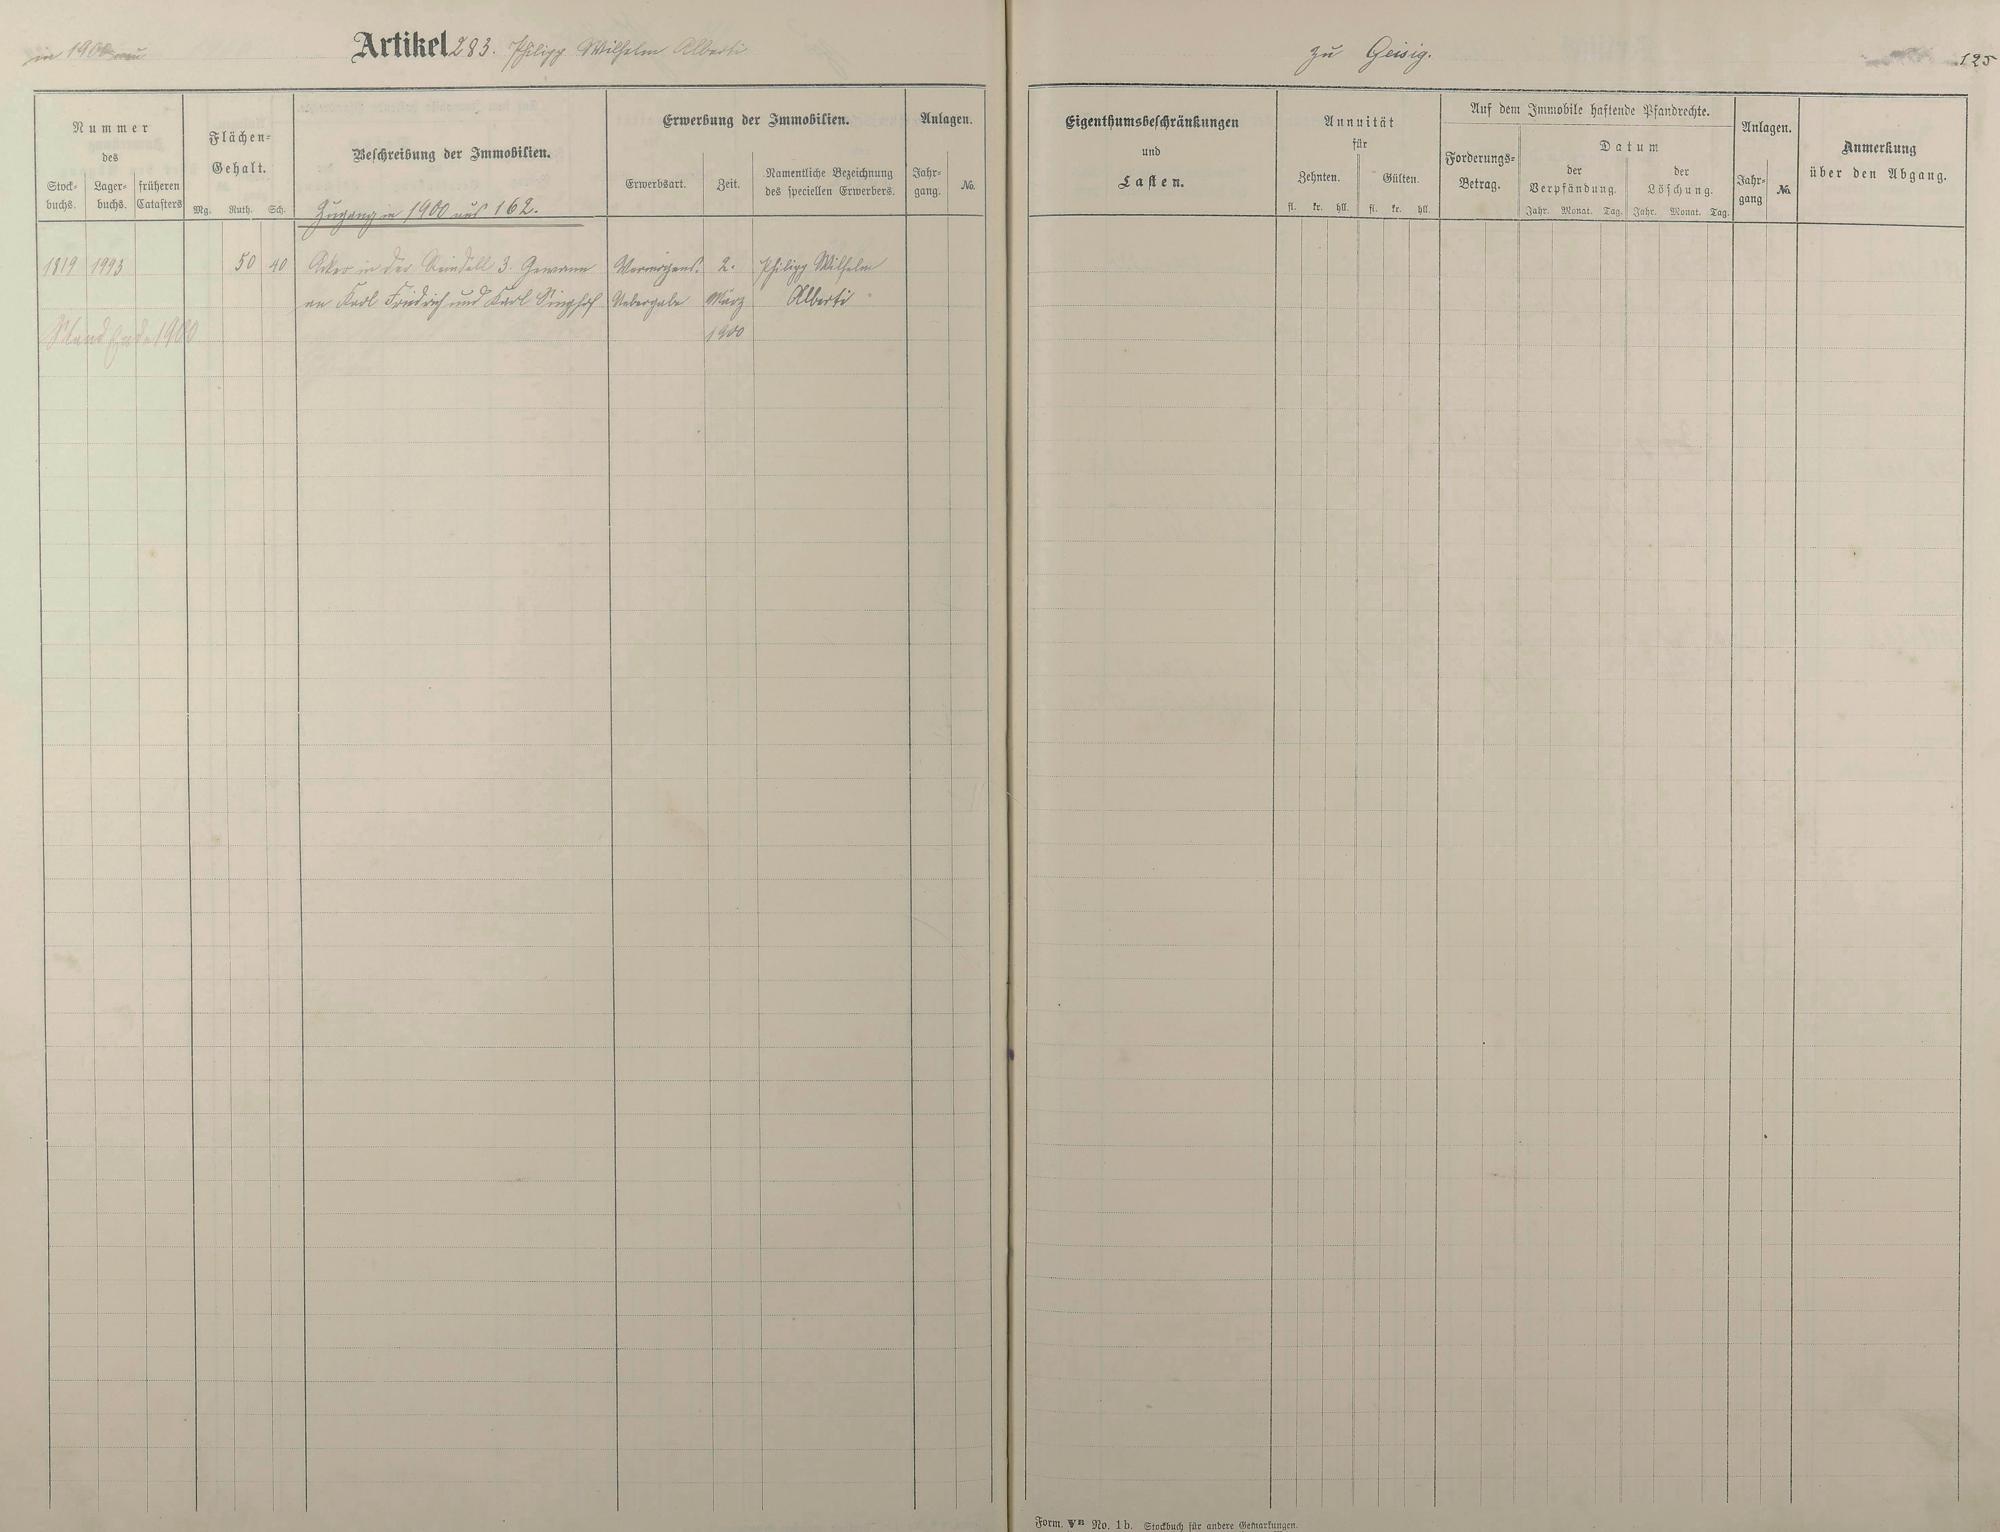 in 1900 neu
Artikel 283. Philipp Wilhelm Alberti
zu Geisig.
125
Nummer
des
Stock-
buchs.
Lager-
buchs.
früheren
Catasters
Flächen-
Gehalt.
Mg. Ruth. Sch.
Beschreibung der Immobilien.
Erwerbung der Immobilien.
Erwerbsart.
Zeit.
Namentliche Bezeichnung
des speciellen Erwerbers.
Anlagen.
Jahr-
gang.
No.
Eigenthumsbeschränkungen
und
Lasten.
Annuität
für
Zehnten.
Gülten.
fl. kr. hll. fl. kr. hll.
Auf dem Immobile haftende Pfandrechte.
Forderungs-
Betrag.
Datum
der
Verpfändung.
der
Löschung.
Jahr. Monat. Tag. Jahr. Monat. Tag.
Anlagen.
Jahr-
gang
No.
Anmerkung
über den Abgang.
Zugang in 1900 aus 162.
1819 1993 50 40 Acker in der 3. Gewann Vermögens- 2. Philipp Wilhelm
an Karl Friedrich und Karl Singhof Uebergabe März Alberti
Stand Ende 1900 1900
Form. VB No. 1b. Stockbuch für andere Gemarkungen.